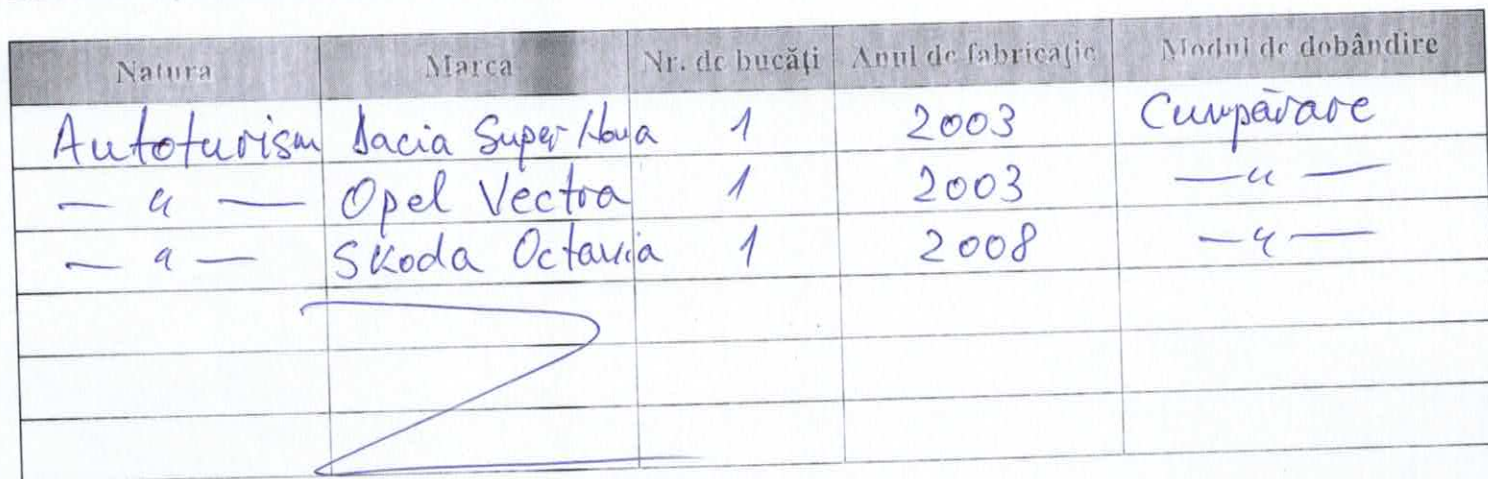 Natura Marca Nr. de bucăți Anul de fabricație Modul de dobândire
Autoturism Dacia Super Nova 1 2003 Cumpărare
— " — Opel Vectra 1 2003 — " —
— " — Skoda Octavia 1 2008 — " —